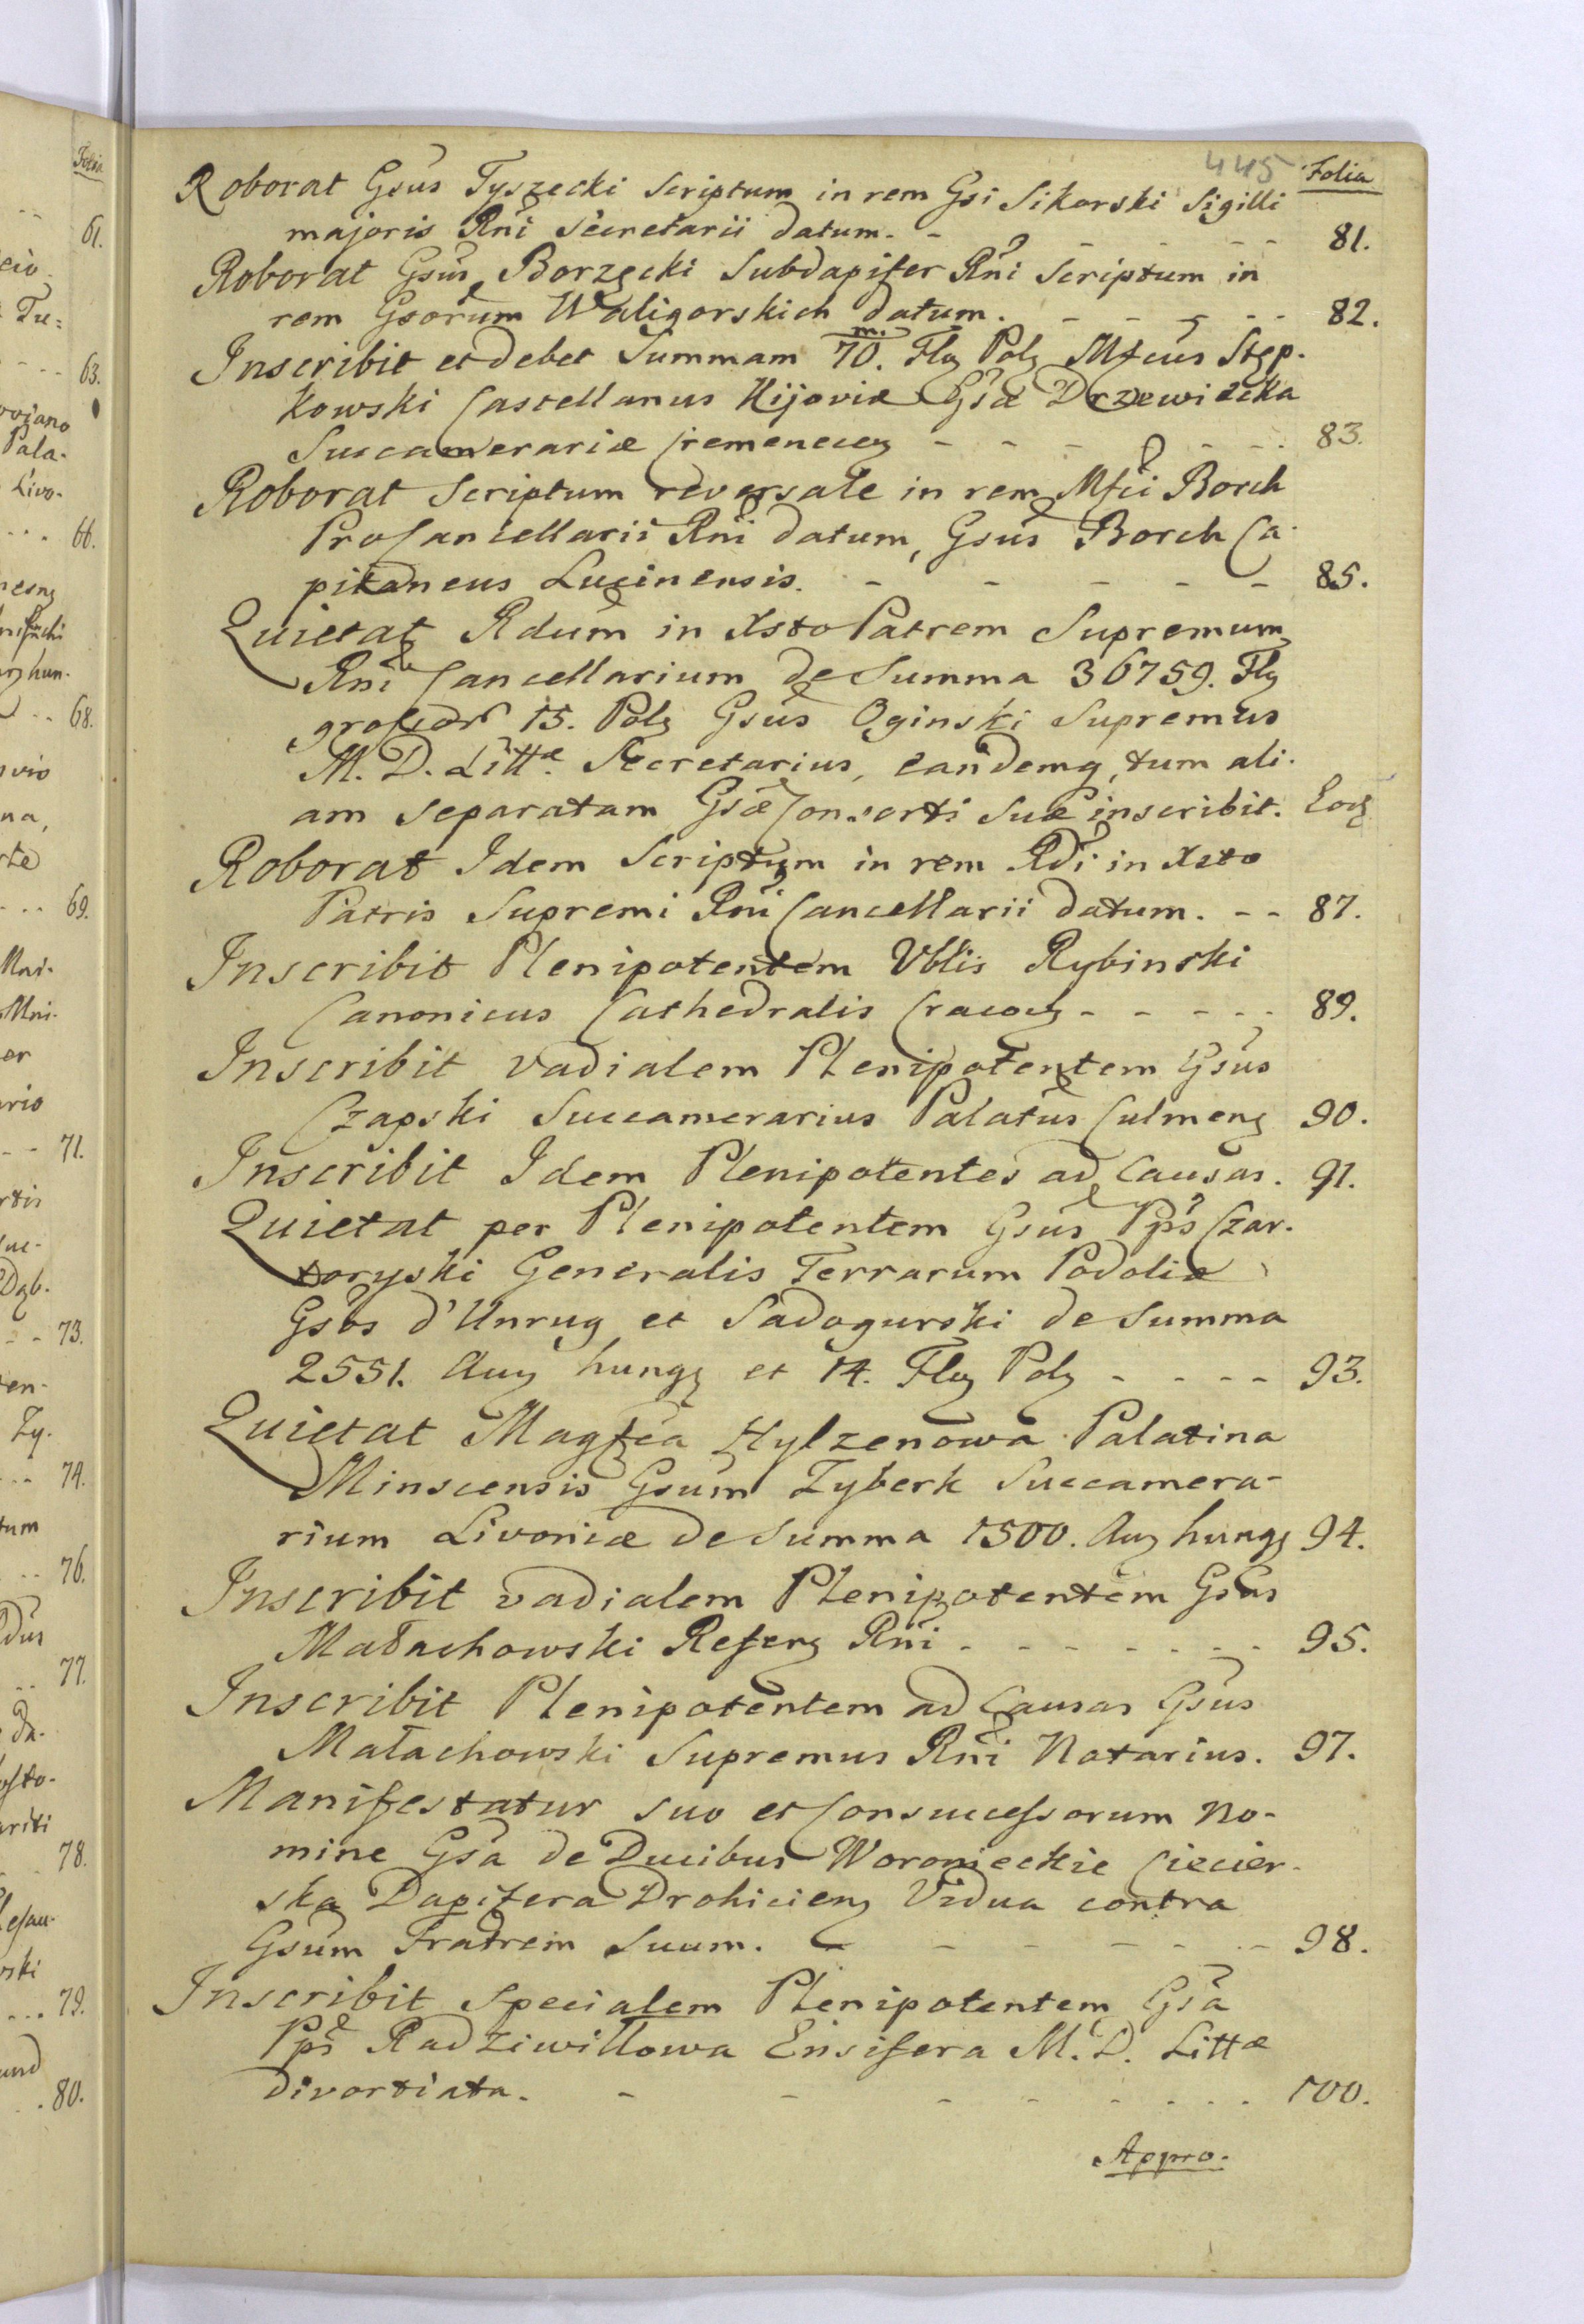 445 Folia
Roborat Gsus Tyszecki Scriptum in rem Gsi Sikorski Sigilli
majoris Rni Secretarii datum. - - - - - 81.
Roborat Gsus Borzęcki Subdapifer Rni Scriptum in
rem Gsorum Waligorskich datum. - - - - - 82.
Inscribit et debet Summam 70.m Flg Polg Mfcus Stęp-
kowski Castellanus Kijoviæ Gsæ Drzewiecka
Succamerariæ Cremeneceng - - - - - - 83.
Roborat Scriptum reversale in rem Mfci Borch
ProCancellarii Rni datum, Gsus Borch Ca-
pitaneus Lucinensis. - - - - - 85.
Quietat Rdum in Xsto Patrem Supremum
Rni Cancellarium de Summa 36759. Flg
grossor 15. Polg Gsus Oginski Supremus
M. D. Littæ. Secretarius, eandemq, tum ali-
am separatam Gsæ Consorti Suæ inscribit. Eodg
Roborat Idem Scriptum in rem Rdi in Xsto
Patris Supremi Rni Cancellarii datum. - - 87.
Inscribit Plenipotentem Vblis Rybinski
Canonicus Cathedralis Cracovg - - - - - 89.
Inscribit vadialem Plenipotentem Gsus
Czapski Succamerarius Palatus Culmeng 90.
Inscribit Idem Plenipotentes ad Causas. 91.
Quietat per Plenipotentem Gsus Pps Czar-
toryski Generalis Terrarum Podoliæ
Gsos d'Unrug et Sadogurski de Summa
2551. Aug hungg et 14. Flg Polg - - - - 93.
Quietat Magfca Hylzenowa Palatina
Minscensis Gsum Zyberk Succamera-
rium Livoniæ de Summa 1500. Aug hungg 94.
Inscribit vadialem Plenipotentem Gsus
Małachowski Referg Rni - - - - - - - 95.
Inscribit Plenipotentem ad Causas Gsus
Małachowski Supremus Rni Notarius. 97.
Manifestatur suo et Consuccessorum no-
mine Gsa de Ducibus Woronieckie Ciecier-
ska Dapifera Drohicieng Vidua contra
Gsum Fratrem Suum. - - - - - - 98.
Inscribit Specialem Plenipotentem Gsa
Pps Radziwiłłowa Ensifera M. D. Littæ
divortiata. - - - - - - - - 100.
Appro.